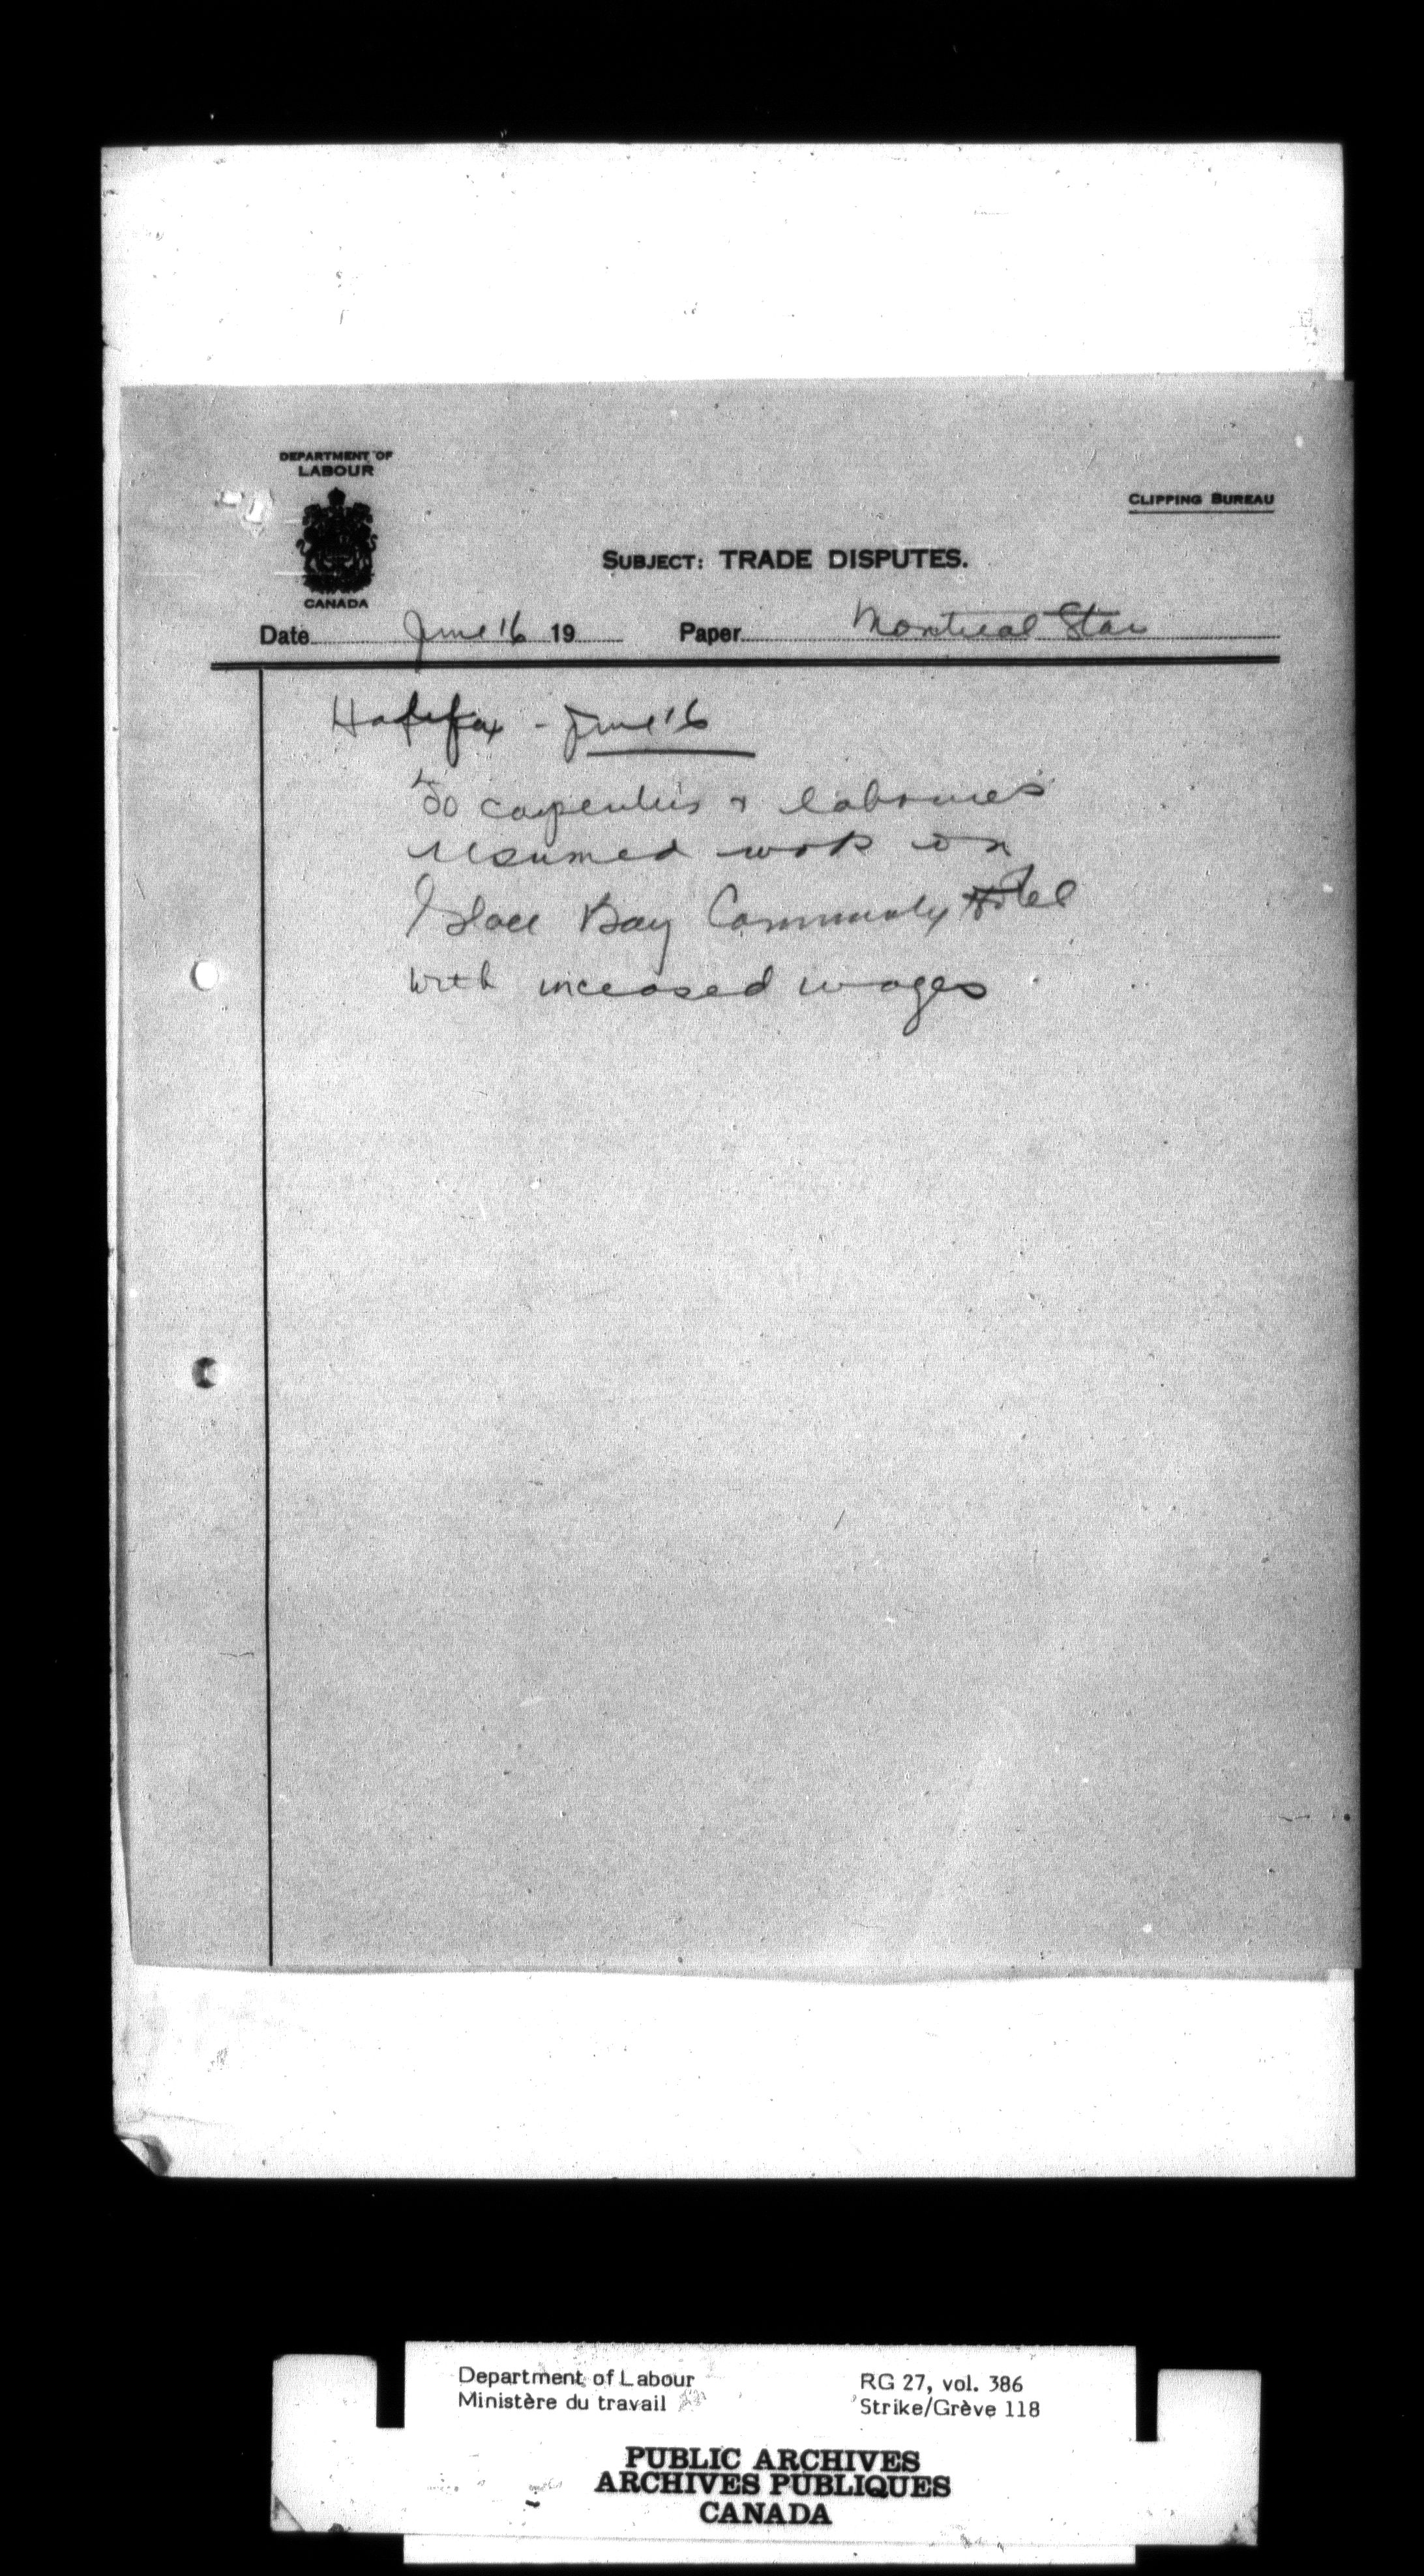 DEPARTMENT OF
LABOUR
CANADA
CLIPPING BUREAU
SUBJECT: TRADE DISPUTES.
Date June 16 19 Paper Montreal Star
Halifax - June 16
50 carpenters & labourers
resumed work on
Glace Bay Community Hotel
with increased wages
Department of Labour
Ministère du travail
RG 27, vol. 386
Strike/Grève 118
PUBLIC ARCHIVES
ARCHIVES PUBLIQUES
CANADA